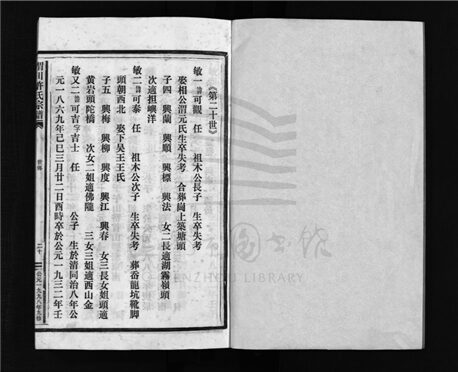 《第二十世》
敏一 諱可觀 任 祖木公長子 生卒失考
娶相公渭元氏生卒失考 合葬崗上築塘頭
子四 興蘭 興順 興標 興法 女二長適湖霧嶺頭
次適担嶼洋
敏二 諱可泰 任 祖木公次子 生卒失考 葬岙龍坑靴脚
頭朝西北 娶下吴王王氏
子五 興梅 興柳 興度 興江 興春 女三長女姐頭適
黄岩頭陀橋 次女二姐適佛隴 三女三姐適西山金
敏又二 諱可吉字吉士 任 公子 生於清同治八年公
元一八六九年己巳三月廿二日酉時卒於公元一九三二年壬
川許氏宗譜
世傳
二十
公元一九九八年
WENZHOU LIBRARY